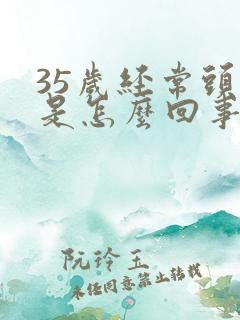 35歲經常頭
是怎麼回事
阮玲玉
未经同意禁止转载